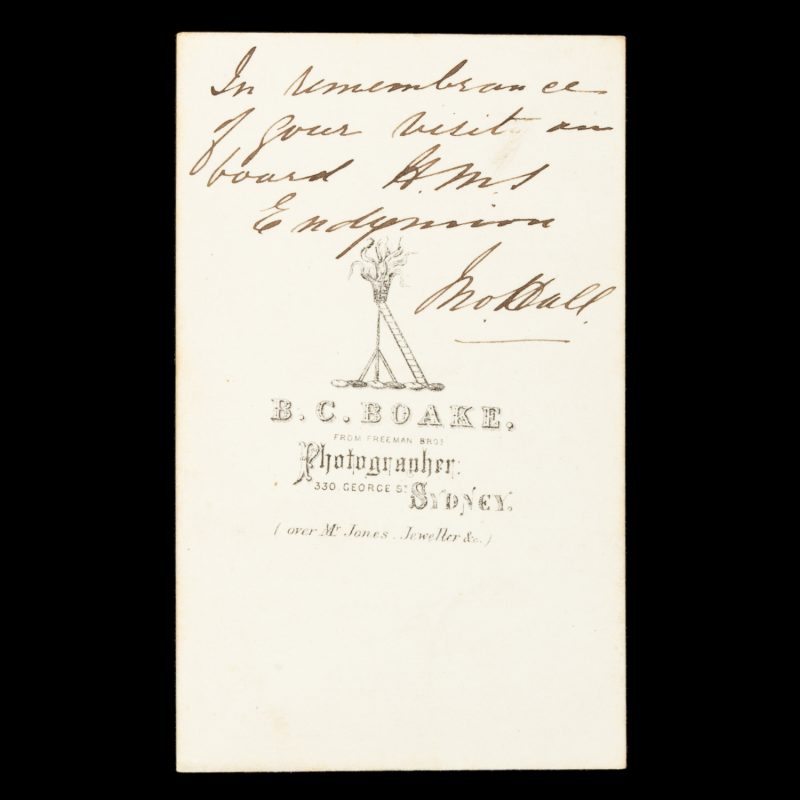 In remembrance
of your visit on
board H.M.S
Endymion
Jno. Hall.
B. C. BOAKE.
FROM FREEMAN BROS
Photographer.
330. GEORGE ST
SYDNEY.
( over Mr Jones. Jeweller &c. )